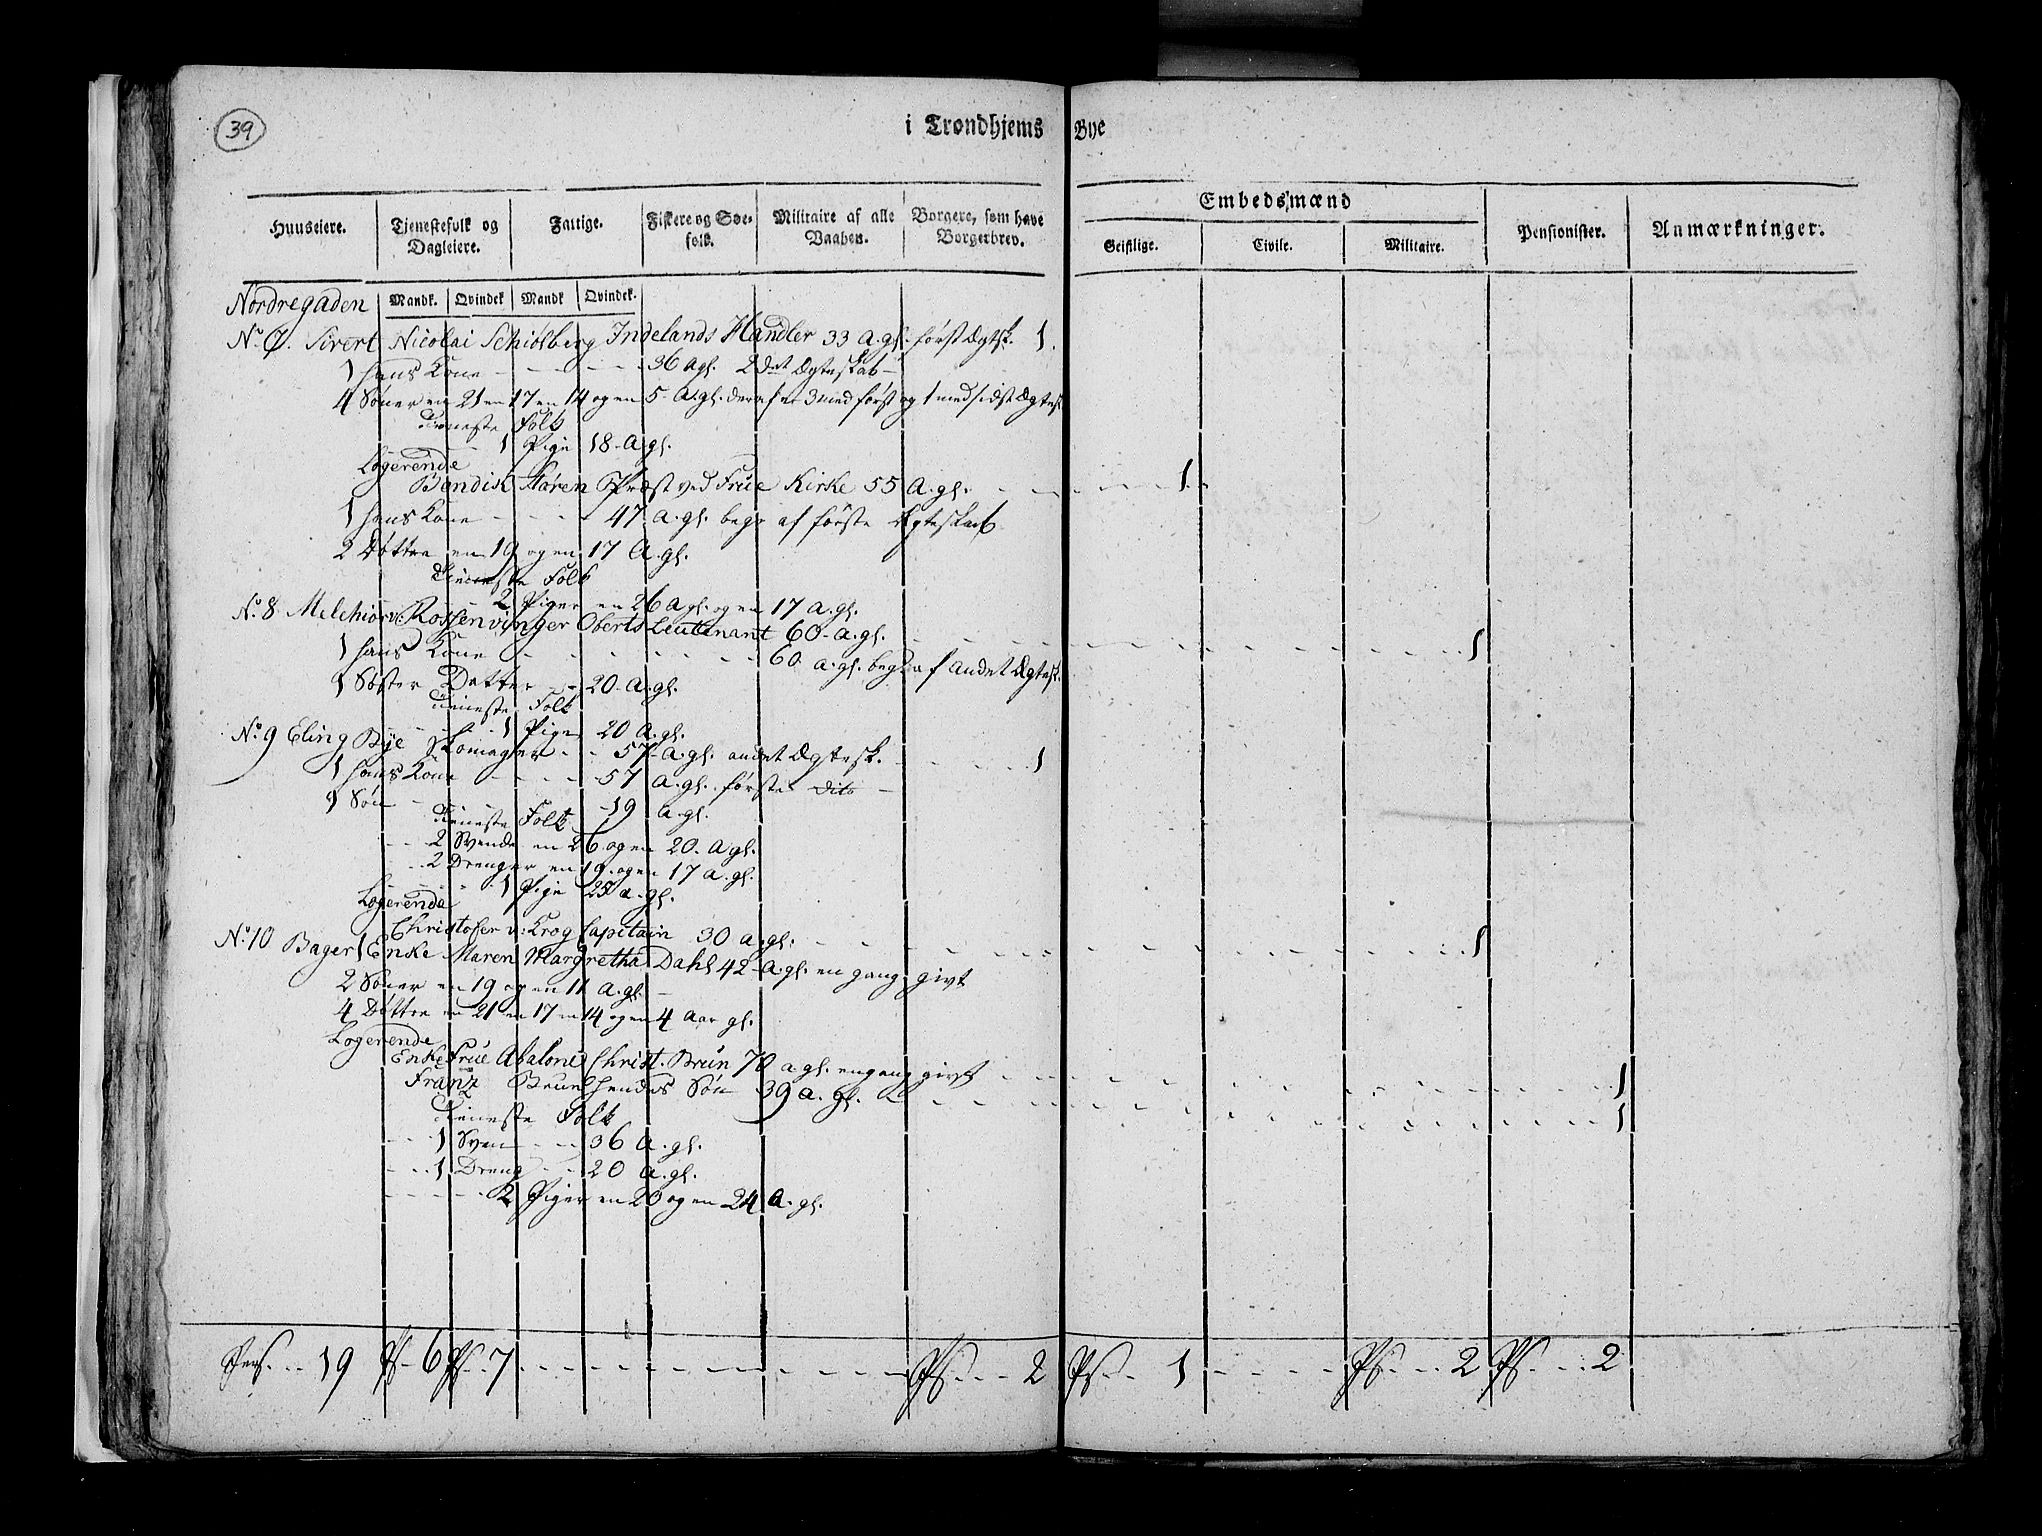 39
i Trondhjems Bye
Huuseiere. Tjenestefolk og Dagleiere. Fattige. Fiskere og Søe-folk. Militaire af alle Vaaben. Borgere, som have Borgerbrev. Embedsmænd Geistlige. Civile. Militaire. Pensionister. Anmærkninger.
Mandk. Qvindek Mandk Qvindek.
Nordregaden
No. 7. Sivert Nicolai Schiølberg Indelands Handler 33 A. gl. først Ægtsk. 1.
1 hans Kone - - - 36 A gl. 2det Ægteskab -
4 Sønner en 21 en 17 en 14 og en 5 - A. gl. deraf er 3 med først og 1 med sidst Ægtesk
Tieneste Folk
1 Pige 18 - A. gl.
Logerende
Bendix Præst ved Frue Kirke 55 A. gl. - - - 1
1 hans Kone - - - 47 A. gl. begge af første Ægteskab
2 Døttre en 19 og en 17 A. gl.
Tieneste Folk
2 Piger en 26 A gl. og en 17 A. gl.
No. 8 Melchior v. Rossenvinger Oberst Leutenant 60 - A. gl. - - - 1
1 hans Kone - - - 60 A. gl. begge af andet Ægtesk.
1 Søster Datter - - 20 - A. gl.
Tieneste Folk
- - - 1 Pige 20 A. gl.
No. 9 Eling Bye Skomager - - 57 - A. gl. andet Ægtesk. - - - 1
1 hans Kone - - - 57 A. gl. første dito -
1 Søn - - - 19 A. gl.
Tieneste Folk
- - 2 Svende en 26 og en 20. A gl.
- - 2 Drenger en 19. og en 17 A. gl.
- - - 1 Pige 25 A. gl.
Logerende
Christofer v: Krog Capitain 30 A. gl. - - - 1
No. 10 Bager Enke Maren Margretha Dahl 42 - A. gl. en gang givt
2 Sønner en 19 og en 11 A. gl. -
4 Døttre en 21 en 17 en 14 og en 4 Aar gl.
Logerende
Enke Frue Abaloni Christ. Brun 70 A. gl. en gang givt - - - 1
Franz Brun hendes Søn 39 A. gl. - - - 1
Tieneste Folk
- - 1 Svend - - 36 A. gl.
- - 1 Dreng - - 20 A. gl.
- - - 2 Piger en 20 og en 24 A. gl.
Pers. - - 19 Ps - 6 Ps - 7 - - - Ps - - - 2 Ps - - 1 - - - Ps - - 2 Ps - - 2